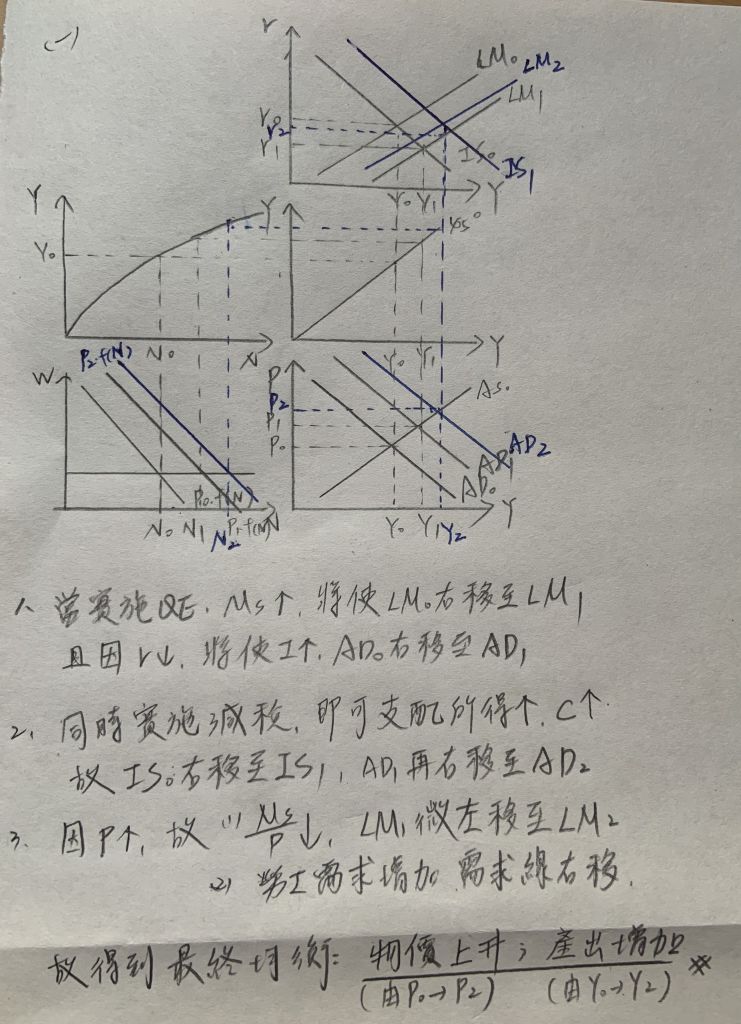 (一)
r
LM₀
LM₂
LM₁
r₀
r₂
r₁
IS₀
IS₁
Y₀ Y₁ Y
Y
Y₀
N₀ N
Y
45°
Y₀ Y₁ Y
W
P₂·f(N)
P₀·f(N)
P₁·f(N)
N₀ N₁ N₂ N
P
P₂
P₁
P₀
AS₀
AD₂
AD₁
AD₀
Y₀ Y₁ Y₂ Y
1、當實施QE、Ms↑、將使LM₀右移至LM₁
且因r↓、將使I↑、AD₀右移至AD₁
2、同時實施減稅、即可支配所得↑、C↑
故IS₀右移至IS₁，AD₁再右移至AD₂
3、因P↑，故(1) Ms/P ↓，LM₁微左移至LM₂
(2) 勞工需求增加 需求線右移。
故得到最終均衡：物價上升；產出增加 ※
(由P₀→P₂) (由Y₀→Y₂)